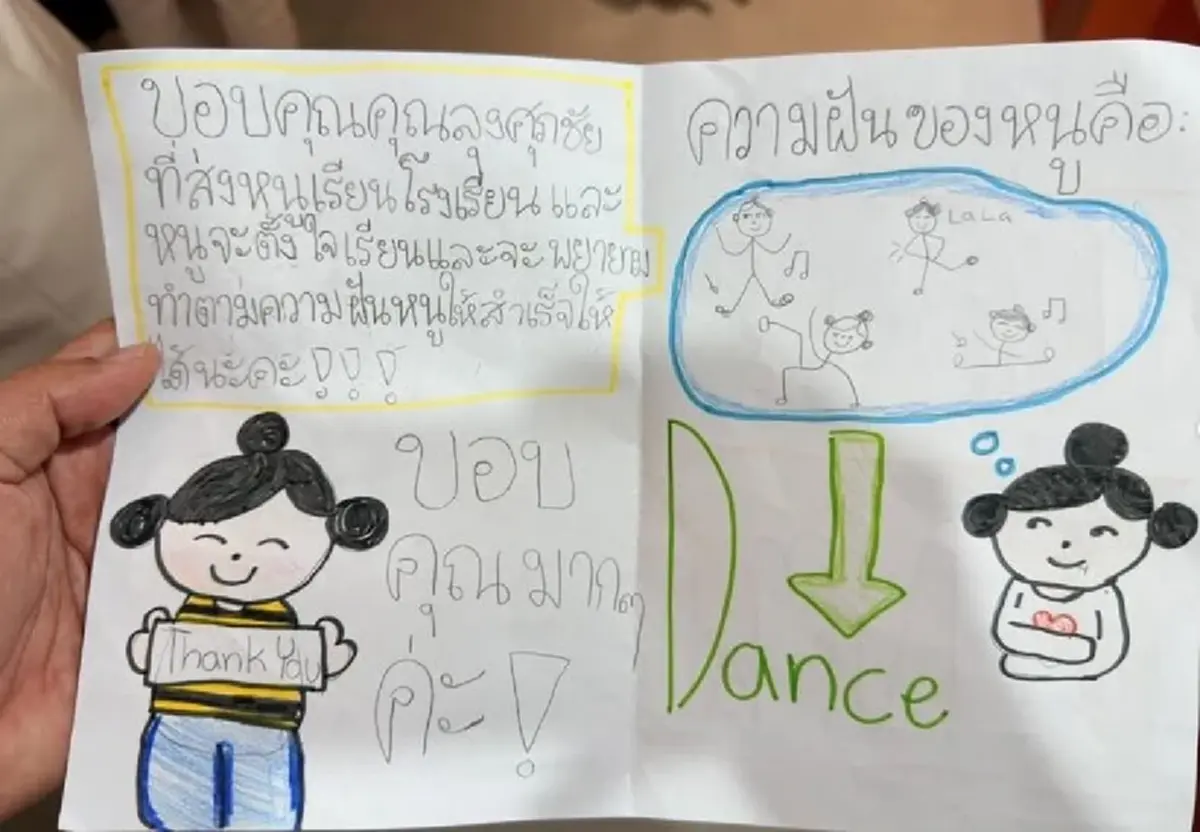 ขอบคุณคุณลุงศุภชัย
ที่ส่งหนูเรียนโรงเรียน และ
หนูจะตั้งใจเรียนและจะพยายาม
ทำตามความฝันหนูให้สำเร็จให้
ได้นะคะ!!!
Thank You
ขอบ
คุณมากๆ
ค่ะ!
ความฝันของหนูคือ:
LaLa
Dance